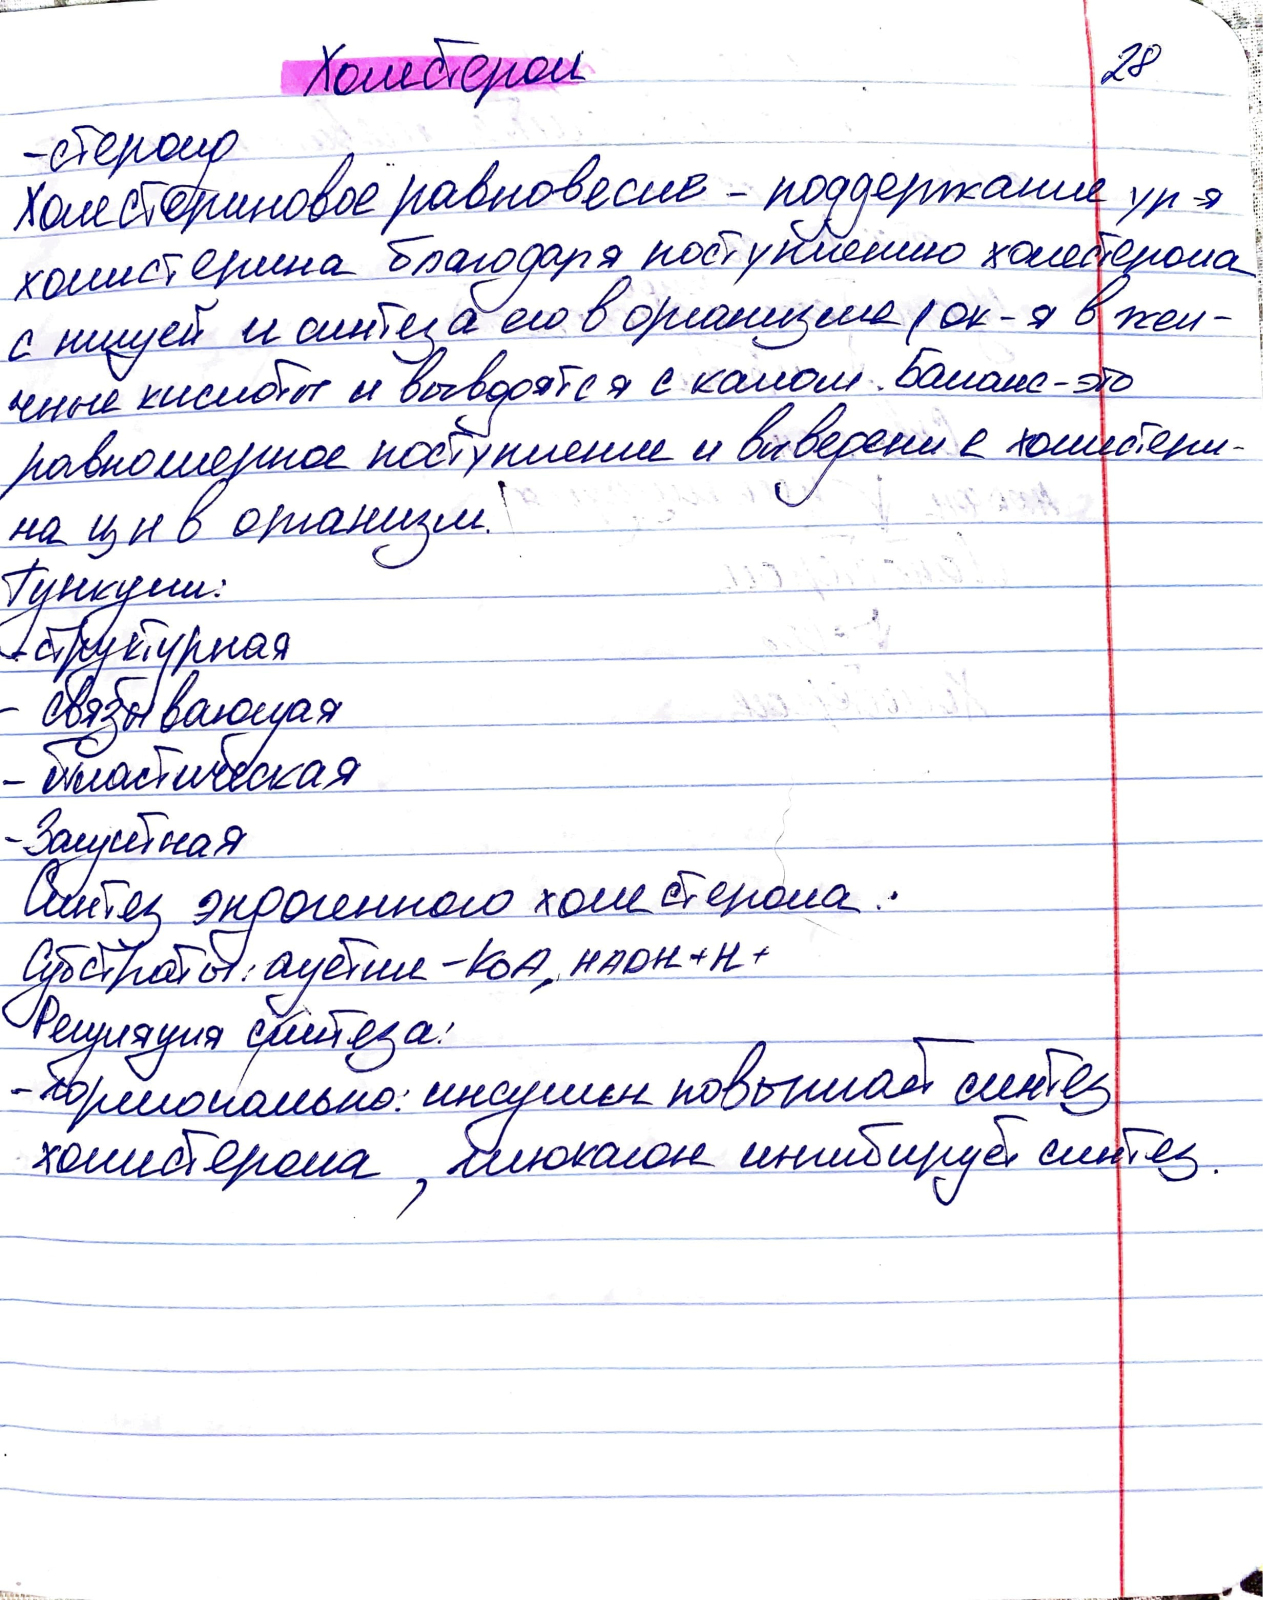 Холестерол 28
-стероид
Холестериновое равновесие - поддержание ур-я
холистерина благодаря поступлению холестерола
с пищей и синтеза его в организме, ок-я в жел-
чные кислоты и выводятся с калом. Баланс-это
равномерное поступление и выведение холистери-
на из и в организм.
Функции:
- структурная
- связывающая
- пластическая
- Защитная
Синтез эндогенного холестерола:
Субстраты: ацетил-КоА, НАДН+Н+
Регуляция синтеза:
- Гормонально: инсулин повышает синтез
холистерола, глюкагон ингибирует синтез.